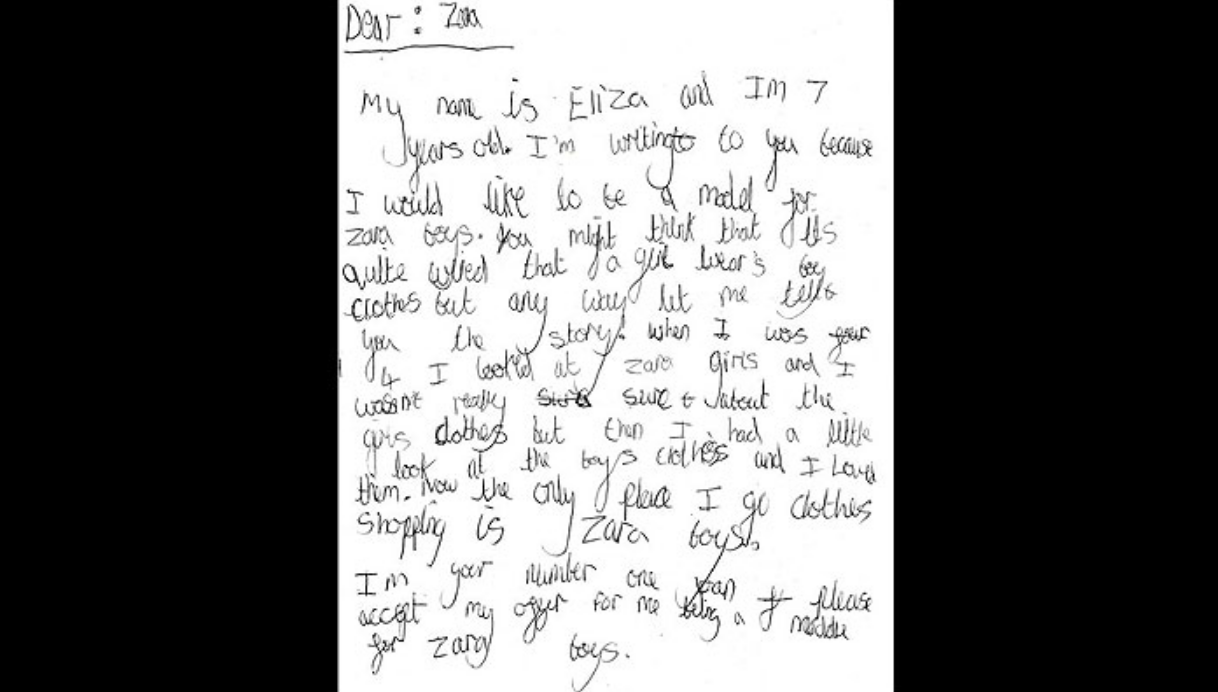 Dear : Zara
My name is Eliza and Im 7
years old. I'm writing to you because
I would like to be a model for
zara boys. You might think that its
quite wired that a girl wear's boy
clothes but any way let me tell
you the story! when I was four
4 I looked at zara girls and I
wasn't really sure sure about the
girls clothes but then I had a little
look at the boys clothes and I Loved
them. Now the only place I go clothes
shopping is Zara boys.
Im your number one fan please
accept my offer for me being a moddle
for zara boys.